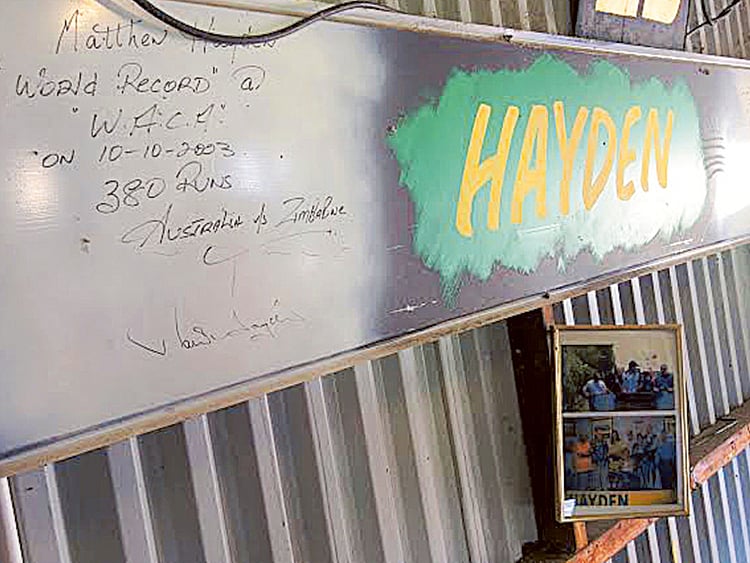 Matthew Hayden
"World Record" @
"W.A.C.A"
ON 10-10-2003
380 Runs
Australia Vs Zimbabwe
HAYDEN
HAYDEN